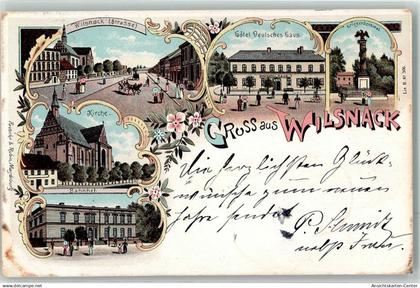 Wilsnack (Strasse)
Hôtel Deutsches Haus
Kriegerdenkmal
Kirche
GRUSS aus WILSNACK
Die herzlichsten Glück-
wünsche zum neuen
Jahre sendet
P. Schmitz
nebst Frau.
Ansichtskarten-Center